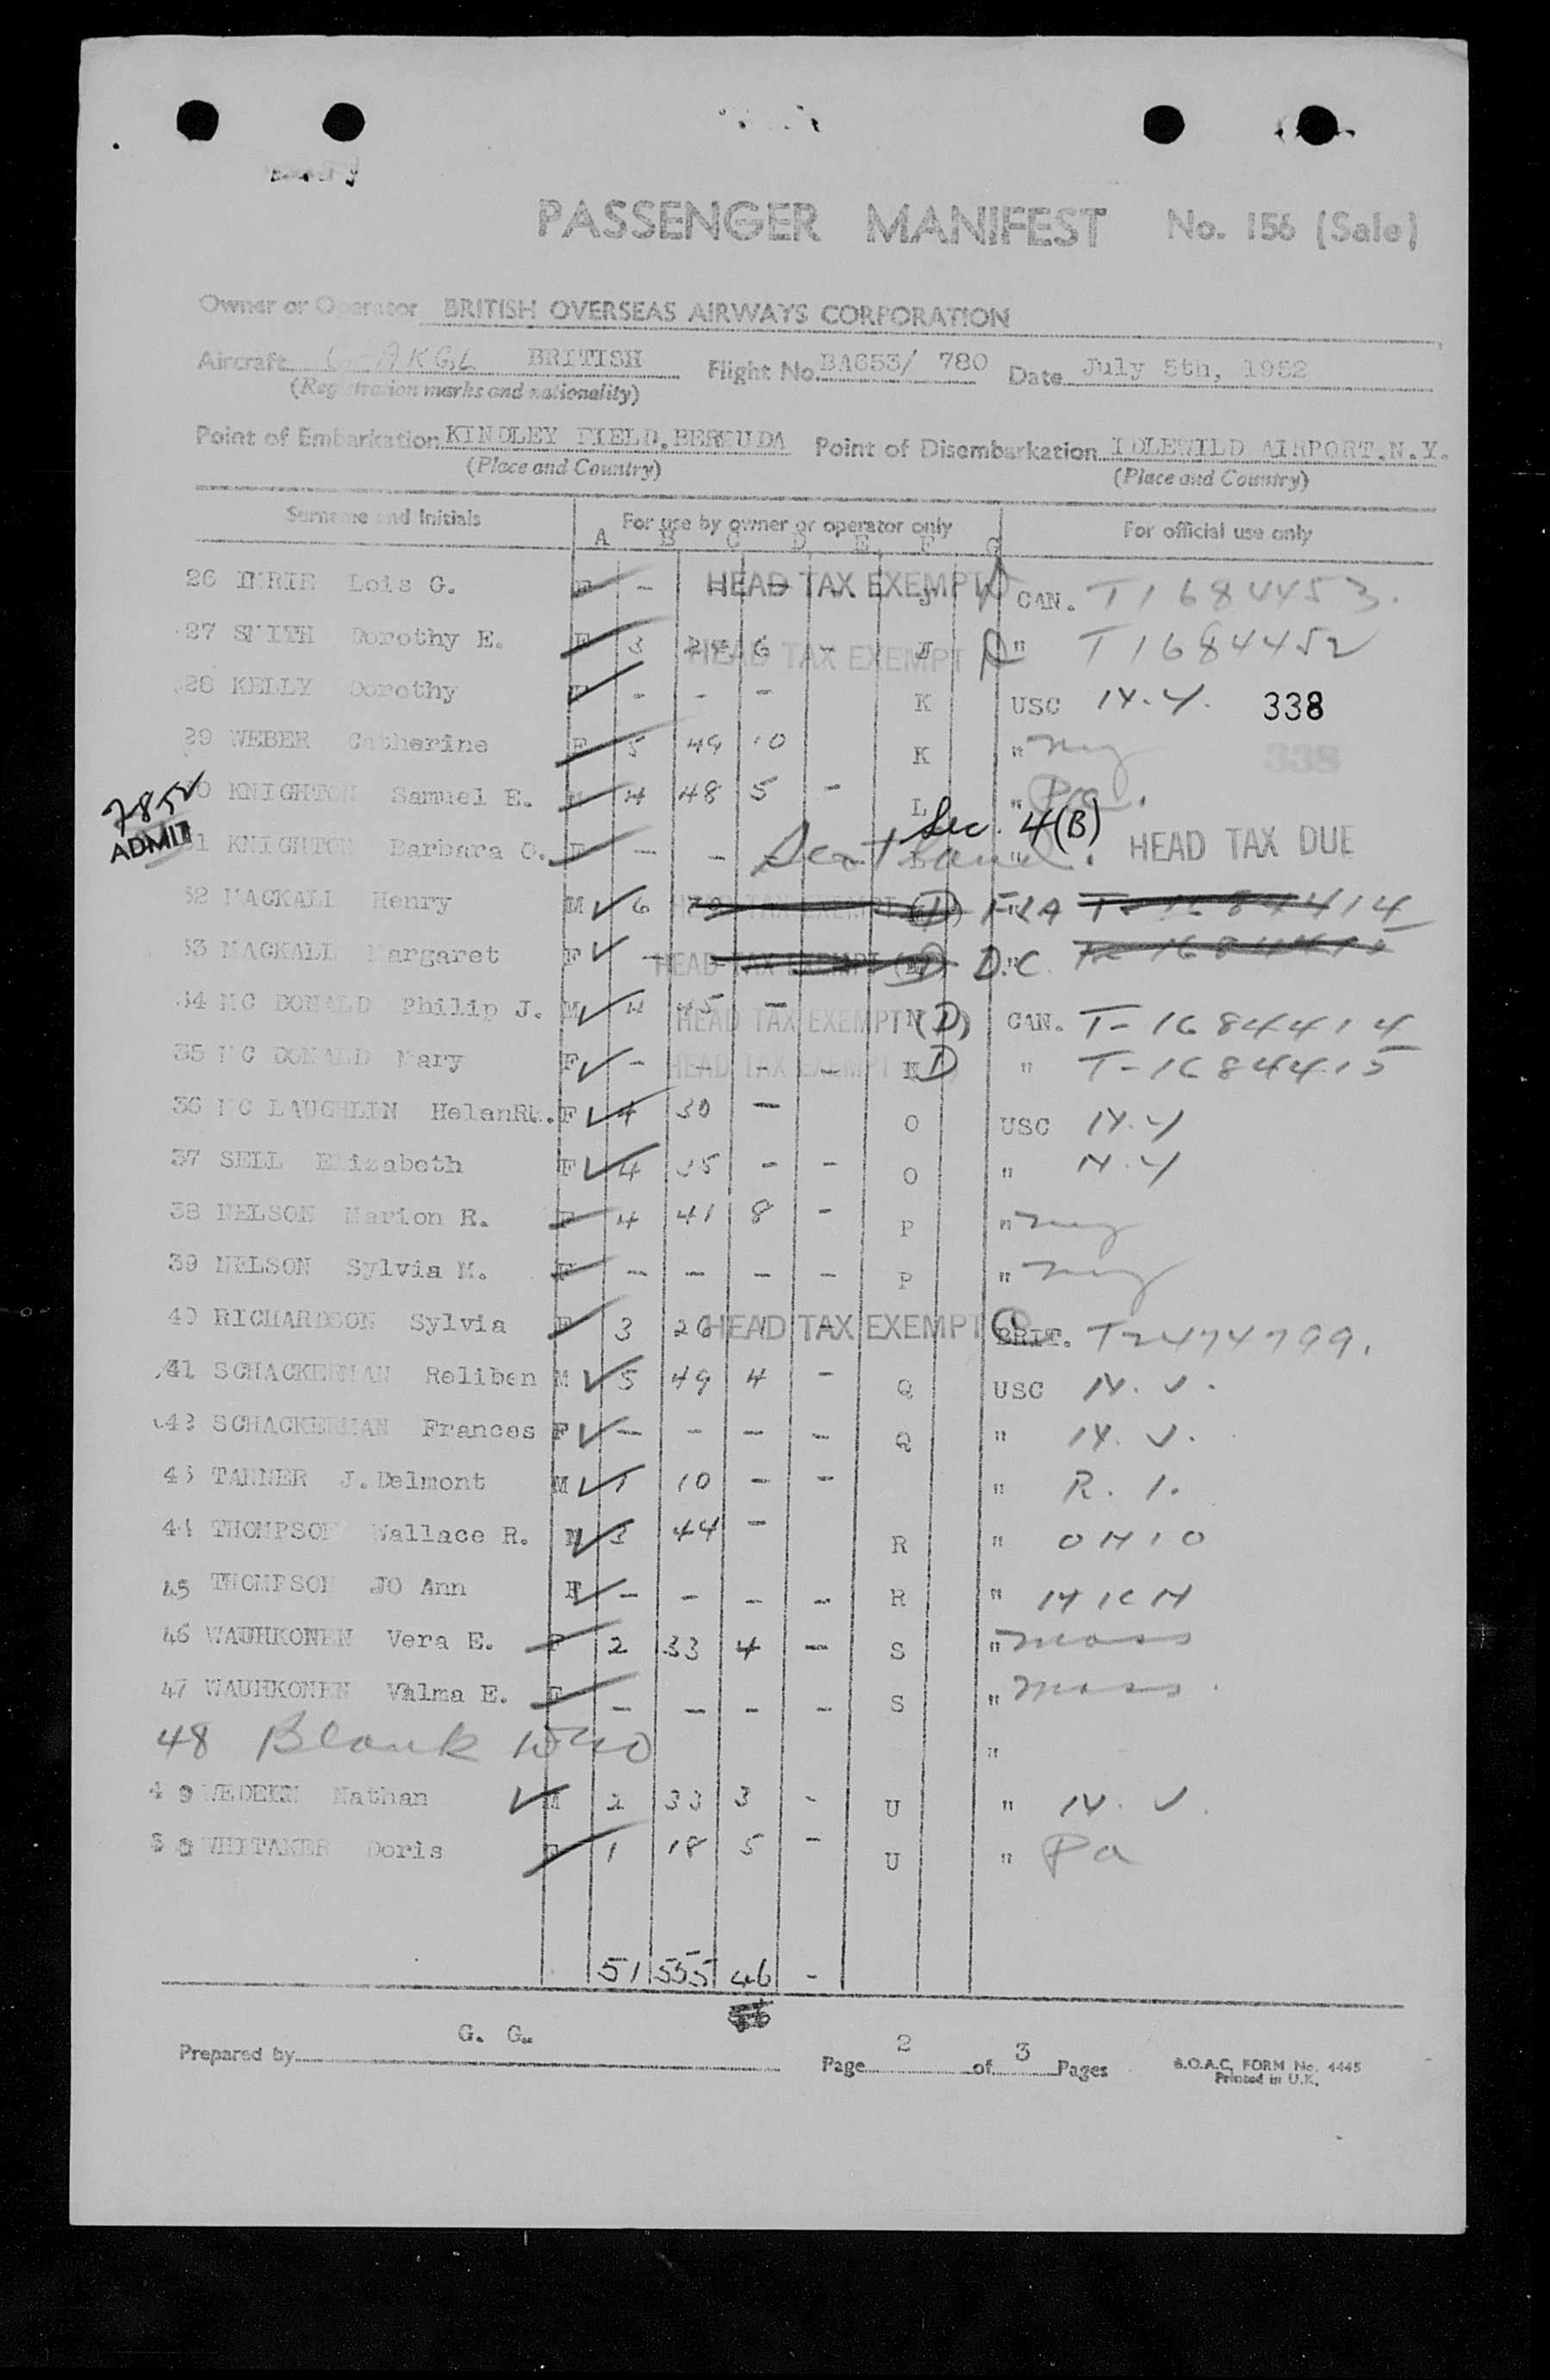 PASSENGER MANIFEST No. 156 (Sale)
Owner or Operator BRITISH OVERSEAS AIRWAYS CORPORATION
Aircraft G-AKGL BRITISH Flight No. BA653/ 780 Date July 5th, 1952
(Registration marks and nationality)
Point of Embarkation KINDLEY FIELD, BERMUDA Point of Disembarkation IDLEWILD AIRPORT, N.Y.
(Place and Country) (Place and Country)
Surname and Initials For use by owner or operator only For official use only
A B C D E F G
26 IMRIE Lois G. F - HEAD TAX EXEMPT J CAN. T1684453.
27 SMITH Dorothy E. F 3 24 6 - HEAD TAX EXEMPT J " T1684452
28 KELLY Dorothy F - - - K USC N.Y. 338
29 WEBER Catherine F 5 49 10 K " NY 338
30 KNIGHTON Samuel E. M 4 48 5 - L " Pa.
7852 ADMIT
Sec. 4(B)
31 KNIGHTON Barbara C. F - - Scotland. HEAD TAX DUE
32 MACKALL Henry M 6 79 HEAD TAX EXEMPT (D) " T-1684414
33 MACKALL Margaret F - HEAD TAX EXEMPT (D) D.C. " T-1684415
34 MC DONALD Philip J. M 4 45 - HEAD TAX EXEMPT N (D) CAN. T-1684414
35 MC DONALD Mary F - - - - HEAD TAX EXEMPT N D " T-1684415
36 MC LAUGHLIN Helen F 4 30 - O USC N.Y
37 SELL Elizabeth F 4 35 - - O " N.Y
38 NELSON Marion R. F 4 41 8 - P " NY
39 NELSON Sylvia M. F - - - - P " NY
40 RICHARDSON Sylvia F 3 26 HEAD TAX EXEMPT BRIT. T2474799.
41 SCHACKERMAN Reliben M 5 49 4 - Q USC N.J.
42 SCHACKERMAN Frances F - - - - Q " N.J.
43 TANNER J.Delmont M 1 10 - - " R.I.
44 THOMPSON Wallace R. M 3 44 - R " OHIO
45 THOMPSON JO Ann F - - - - R " MICH
46 WAUHKONEN Vera E. F 2 33 4 - S " Mass
47 WAUHKONEN Vilma E. F - - - - S " Mass.
48 Blank "
49 WEDEEN Nathan M 2 33 3 - U " N.J.
50 WHITAKER Doris F 1 18 5 - U " Pa
51 555 46 -
Prepared by G. G. Page 2 of 3 Pages B.O.A.C. FORM No. 4445
Printed in U.K.